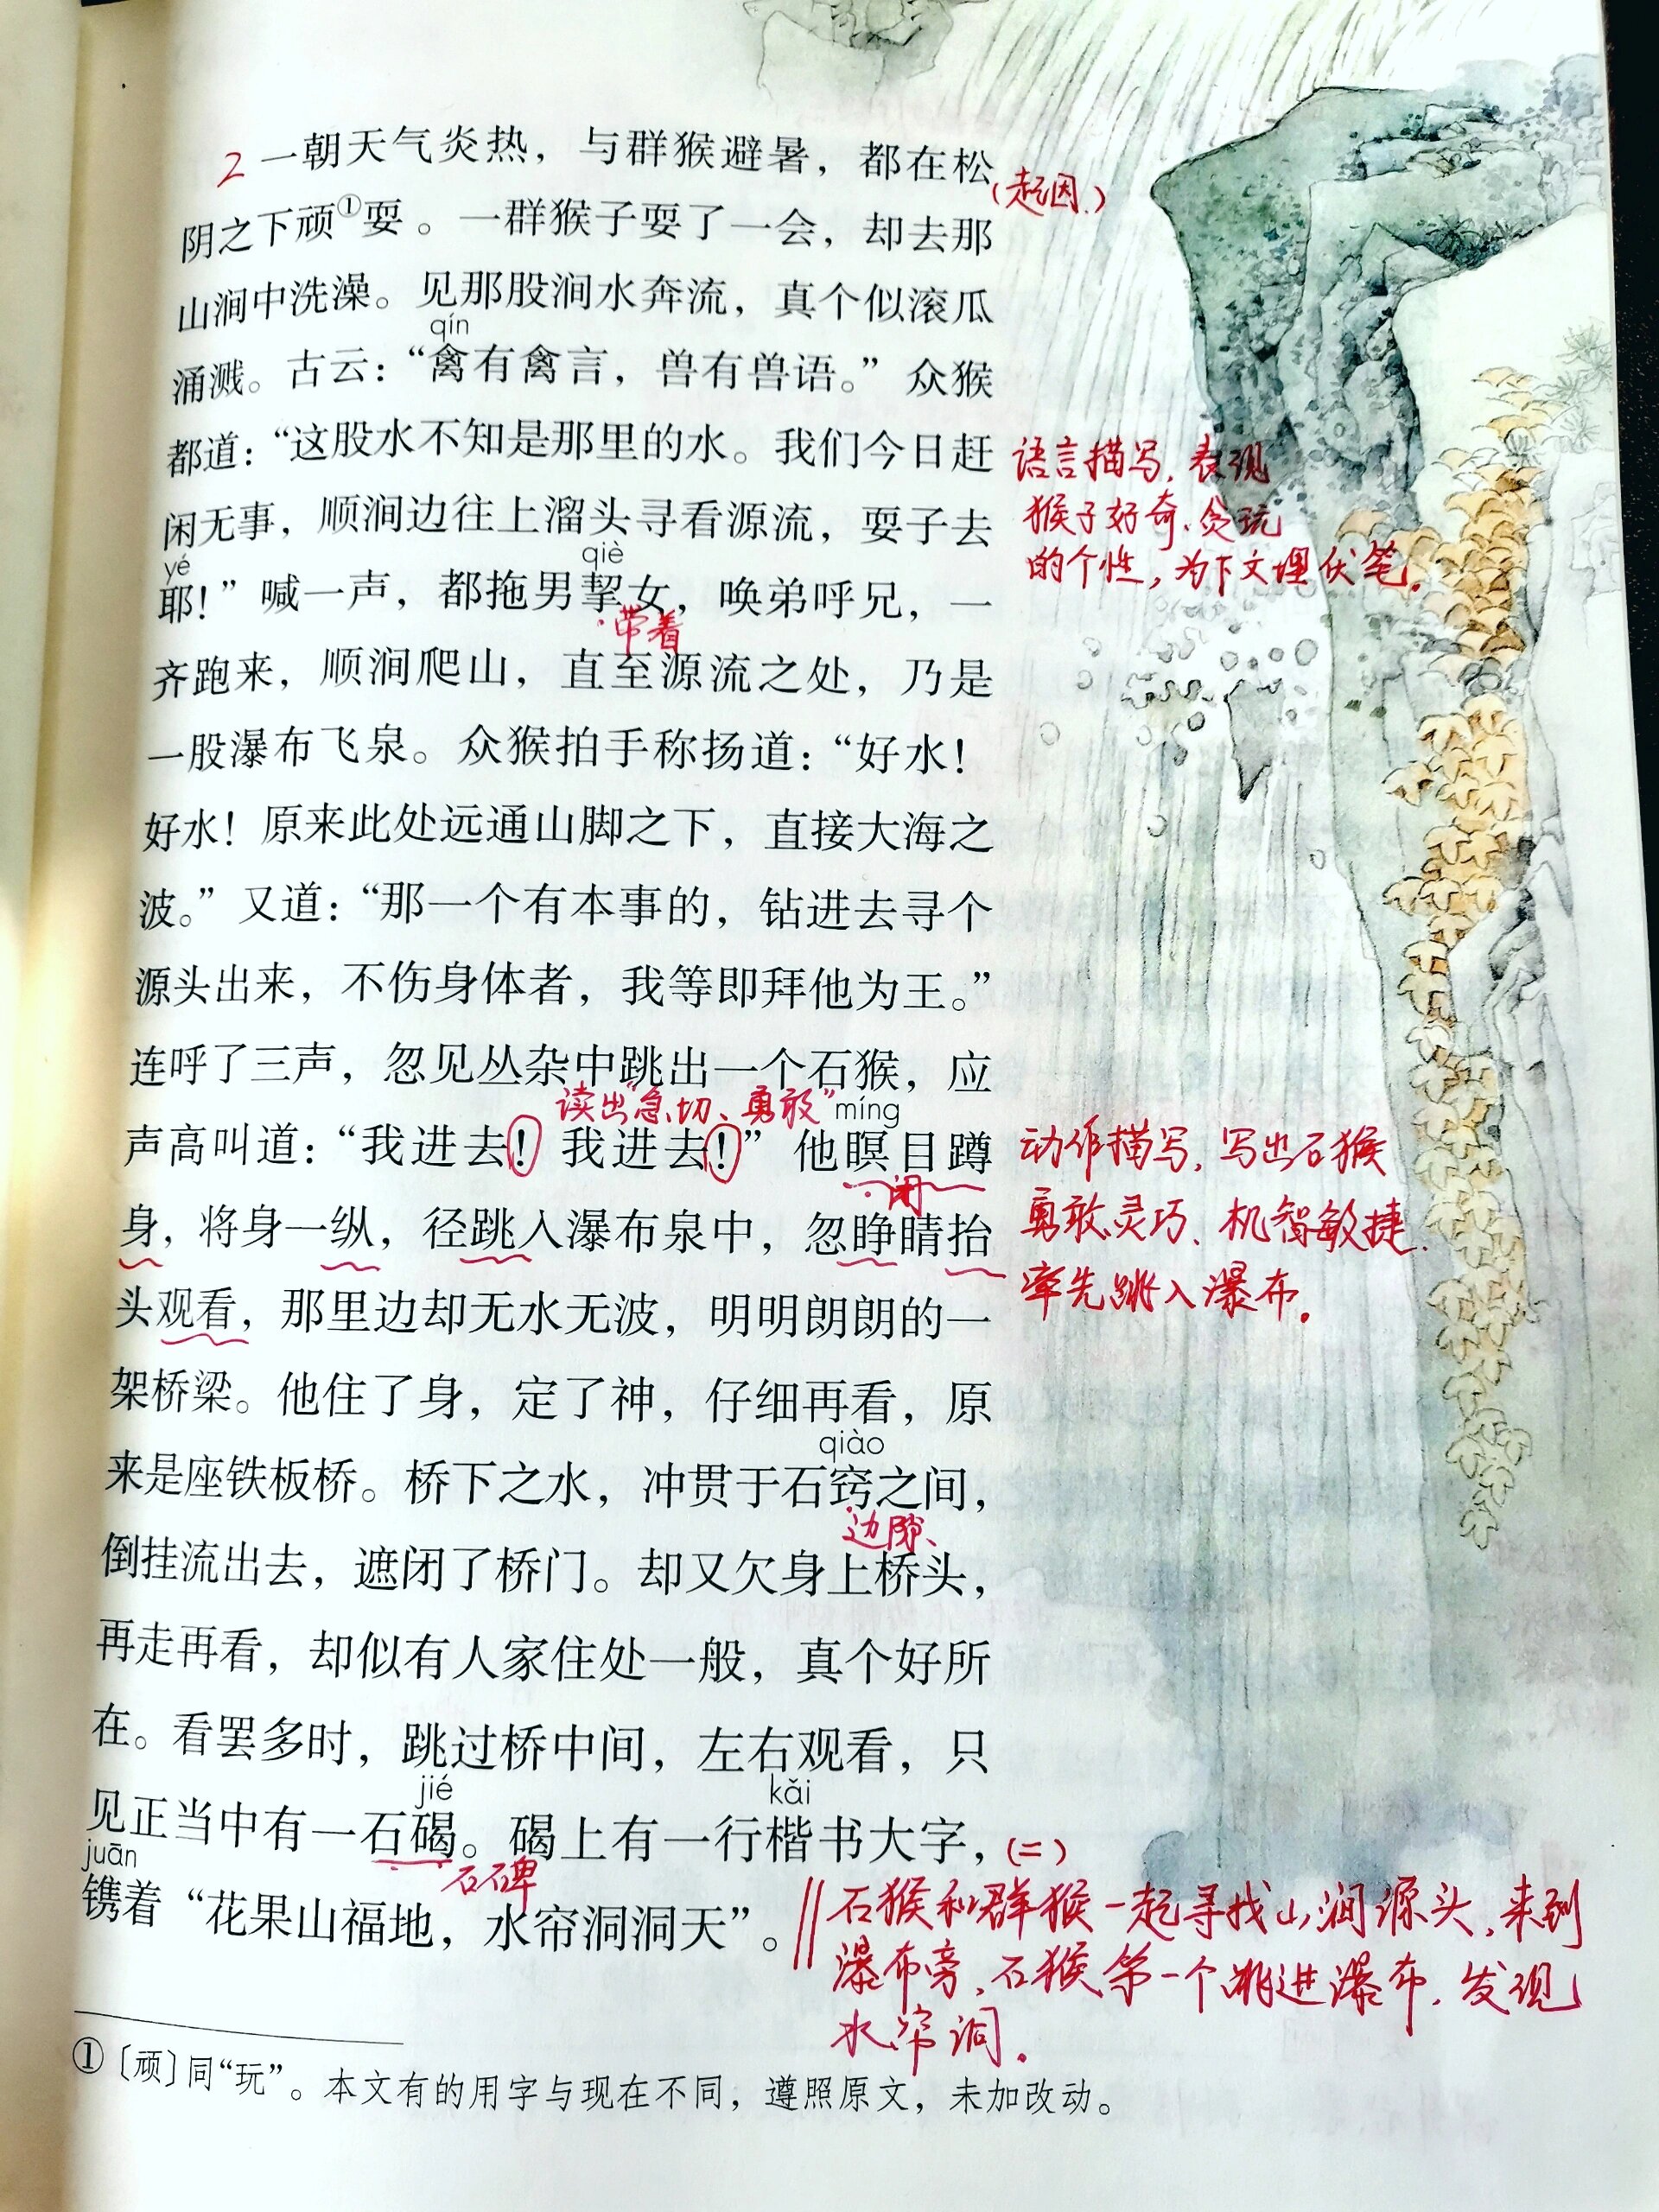 2 一朝天气炎热，与群猴避暑，都在松
（起因）
阴之下顽①耍。一群猴子耍了一会，却去那
山涧中洗澡。见那股涧水奔流，真个似滚瓜
qín
涌溅。古云：“禽有禽言，兽有兽语。”众猴
都道：“这股水不知是那里的水。我们今日赶
语言描写，表现
闲无事，顺涧边往上溜头寻看源流，耍子去
猴子好奇、贪玩
的个性，为下文埋伏笔。
yé qiè
耶！”喊一声，都拖男挈女，唤弟呼兄，一
带着
齐跑来，顺涧爬山，直至源流之处，乃是
一股瀑布飞泉。众猴拍手称扬道：“好水！
好水！原来此处远通山脚之下，直接大海之
波。”又道：“那一个有本事的，钻进去寻个
源头出来，不伤身体者，我等即拜他为王。”
连呼了三声，忽见丛杂中跳出一个石猴，应
读出“急切、勇敢” míng
声高叫道：“我进去！我进去！”他瞑目蹲
闭
动作描写，写出石猴
身，将身一纵，径跳入瀑布泉中，忽睁睛抬
勇敢灵巧、机智敏捷，
率先跳入瀑布。
头观看，那里边却无水无波，明明朗朗的一
架桥梁。他住了身，定了神，仔细再看，原
qiào
来是座铁板桥。桥下之水，冲贯于石窍之间，
边隙、
倒挂流出去，遮闭了桥门。却又欠身上桥头，
再走再看，却似有人家住处一般，真个好所
在。看罢多时，跳过桥中间，左右观看，只
jié kǎi
见正当中有一石碣。碣上有一行楷书大字，
（二）
石碑
juān
镌着“花果山福地，水帘洞洞天”。
‖石猴和群猴一起寻找山涧源头，来到
瀑布旁，石猴第一个跳进瀑布，发现
水帘洞。
①〔顽〕同“玩”。本文有的用字与现在不同，遵照原文，未加改动。